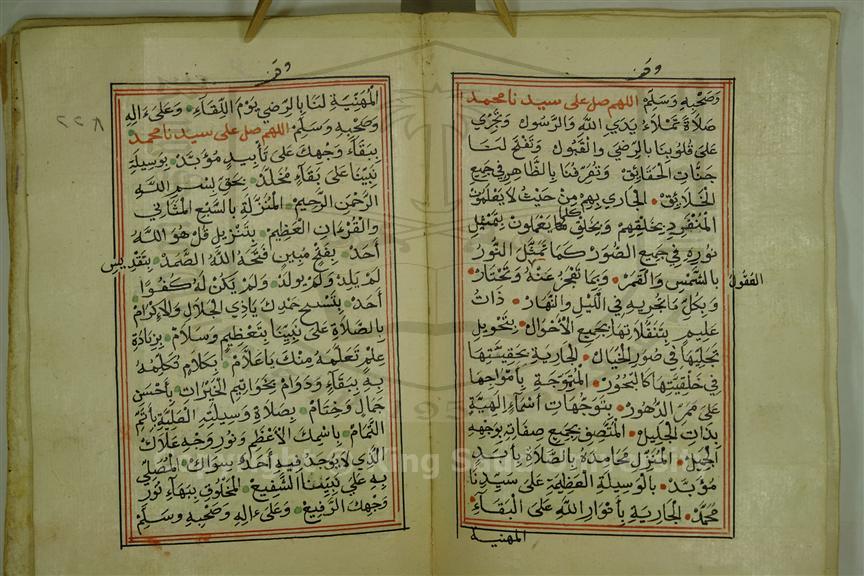 وقف
وَصَحْبِهِ وَسَلِّمْ اللهم صل على سيدنا محمد
صَلَاةً تَمْلَاءُ يَدَيِ اللَّهِ وَالرَّسُولِ وَتَجْرِي
عَلَى قُلُوبِنَا بِالرِّضَى وَالْقَبُولِ وَتَفْتَحُ لَنَا
جَنَّاتِ الْحَقَايِقِ وَتُعَرِّفُنَا بِالظَّاهِرِ فِي جَمِيعِ
الْخَلَايِقِ الْجَارِي بِهِمْ مِنْ حَيْثُ لَا يَعْلَمُونَ
الْمُنْفَرِدِ بِخَلْقِهِمْ وَبِخَلْقِ كلما يَعْمَلُونَ بِتَمْثِيلِ
نُورِهِ فِي جَمِيعِ الصُّوَرِ كَمَا تَمَثَّلَ النُّورُ
بِالشَّمْسِ وَالْقَمَرِ وَبِمَا تَفْجُرُ عَنْهُ وَتَخْتَارُ
وَبِكُلِّ مَا تُجْرِيهِ فِي اللَّيْلِ وَالنَّهَارِ ذَاتُ
عَلِيمٍ بِتَنَقُّلَاتِهَا بِجَمِيعِ الْأَحْوَالِ بِتَحْوِيلِ
تَجَلِّيهَا فِي صُوَرِ الْخَيَالِ الْجَارِيَةِ بِحَقِيقَتِهَا
فِي خَلْقِيَّتِهَا كَالْبُحُورِ الْمُتَمَوِّجَةِ بِأَمْوَاجِهَا
عَلَى مَمَرِّ الدُّهُورِ بِتَوَجُّهَاتِ أَسْمَاءٍ الٰهِيَّةِ
بِذَاتِ الْجَلِيلِ الْمُتَّصِفِ بِجَمِيعِ صِفَاتِهِ بِوَجْهِهِ
الْجَمِيلِ الْمُنَزِّلِ مَحَامِدَهُ بِالصَّلَاةِ بِأَبَدٍ
مُؤَبَّدٍ بِالْوَسِيلَةِ الْعَظِيمَةِ عَلَى سَيِّدِنَا
مُحَمَّدٍ الْجَارِيَةِ بِأَنْوَارِ اللَّهِ عَلَى الْبَقَاءِ
المهنية
وقف
الْمُهَنِّيَةِ لَنَا بِالرِّضَى يَوْمَ اللِّقَاءِ وَعَلَى ءَالِهِ
وَصَحْبِهِ وَسَلِّمْ اللهم صل على سيدنا محمد
بِبَقَاءِ وَجْهِكَ عَلَى تَأْبِيدٍ مُؤَبَّدٍ بِوَسِيلَةِ
نَبِيِّنَا عَلَى بَقَاءٍ مُخَلَّدٍ بِحَقِّ بِسْمِ اللَّهِ
الرَّحْمَنِ الرَّحِيمِ الْمُنَزَّلَةِ بِالسَّبْعِ الْمَثَانِي
وَالْقُرْءَانِ الْعَظِيمِ بِتَنْزِيلِ قُلْ هُوَ اللَّهُ
أَحَدٌ بِفَتْحٍ مُبِينٍ فَتَحَهُ اللَّهُ الصَّمَدُ بِتَقْدِيسِ
لَمْ يَلِدْ وَلَمْ يُولَدْ وَلَمْ يَكُنْ لَهُ كُفُوًا
أَحَدٌ بِتَسْبِيحِ حَمْدِكَ يَاذِي الْجَلَالِ وَالْإِكْرَامِ
بِالصَّلَاةِ عَلَى نَبِيِّنَا بِتَعْظِيمٍ وَسَلَامٍ بِزِيَادَةِ
عِلْمٍ تُعَلِّمُهُ مِنْكَ بِأَعْلَامٍ بِكَلَامٍ تُكَلِّمُهُ
بِهِ بِبَقَاءٍ وَدَوَامٍ بِخَوَاتِيمِ الْخَيْرَاتِ بِأَحْسَنِ
جَمَالٍ وَخِتَامٍ بِصَلَاةِ وَسِيلَتِهِ الْعَلِيَّةِ بِأَتَمِّ
التَّمَامِ بِاسْمِكَ الْأَعْظَمِ وَنُورِ وَجْهِ عُلَاكَ
الَّذِي لَا يُوجَدُ فِيهِ أَحَدٌ سِوَاكَ الْمُصَلِّي
بِهِ عَلَى نَبِيِّنَا الشَّفِيعِ الْمَخْلُوقِ بِبَهَاءِ نُورِ
وَجْهِكَ الرَّفِيعِ وَعَلَى ءَالِهِ وَصَحْبِهِ وَسَلِّمْ